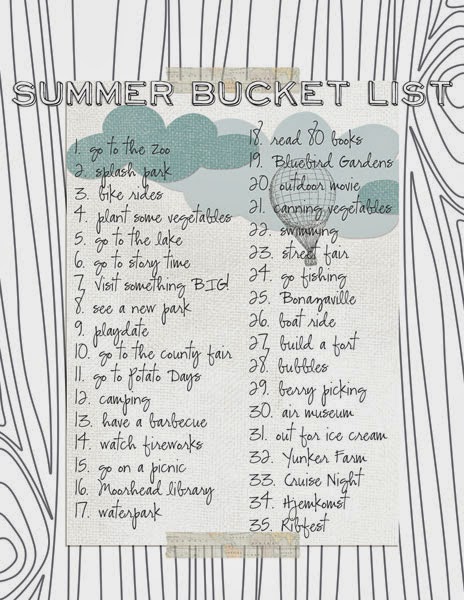 SUMMER BUCKET LIST
1. go to the zoo
2. splash park
3. bike rides
4. plant some vegetables
5. go to the lake
6. go to story time
7. visit something BIG!
8. see a new park
9. playdate
10. go to the county fair
11. go to Potato Days
12. camping
13. have a barbecue
14. watch fireworks
15. go on a picnic
16. Moorhead library
17. waterpark
18. read 80 books
19. Bluebird Gardens
20. outdoor movie
21. canning vegetables
22. swimming
23. street fair
24. go fishing
25. Bonazaville
26. boat ride
27. build a fort
28. bubbles
29. berry picking
30. air museum
31. out for ice cream
32. Yunker Farm
33. Cruise Night
34. Hjemkomst
35. Ribfest